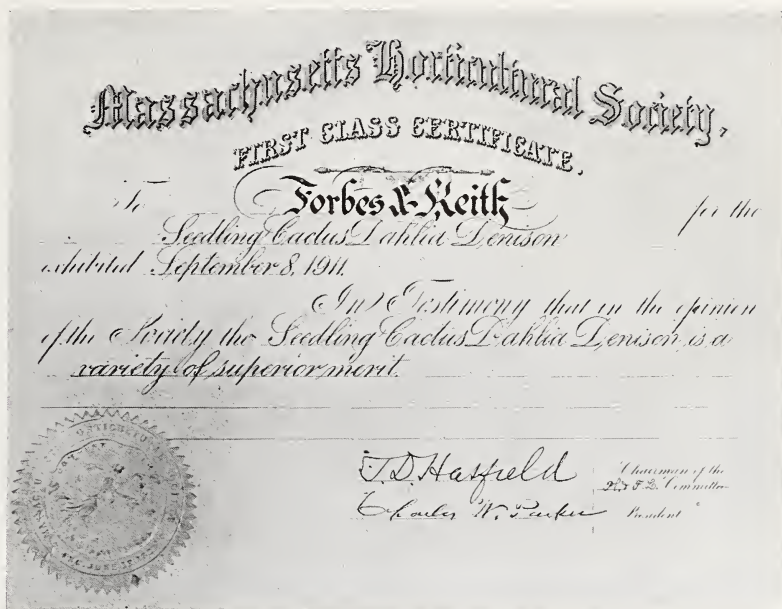 Massachusetts Horticultural Society,
FIRST CLASS CERTIFICATE.
To Forbes & Keith for the
Seedling Cactus Dahlia Denison
exhibited September 8, 1911.
In Testimony that in the opinion
of the Society the Seedling Cactus Dahlia Denison is a
variety of superior merit.
T. D. Hatfield Chairman of the
Committee
Charles W. Parker President